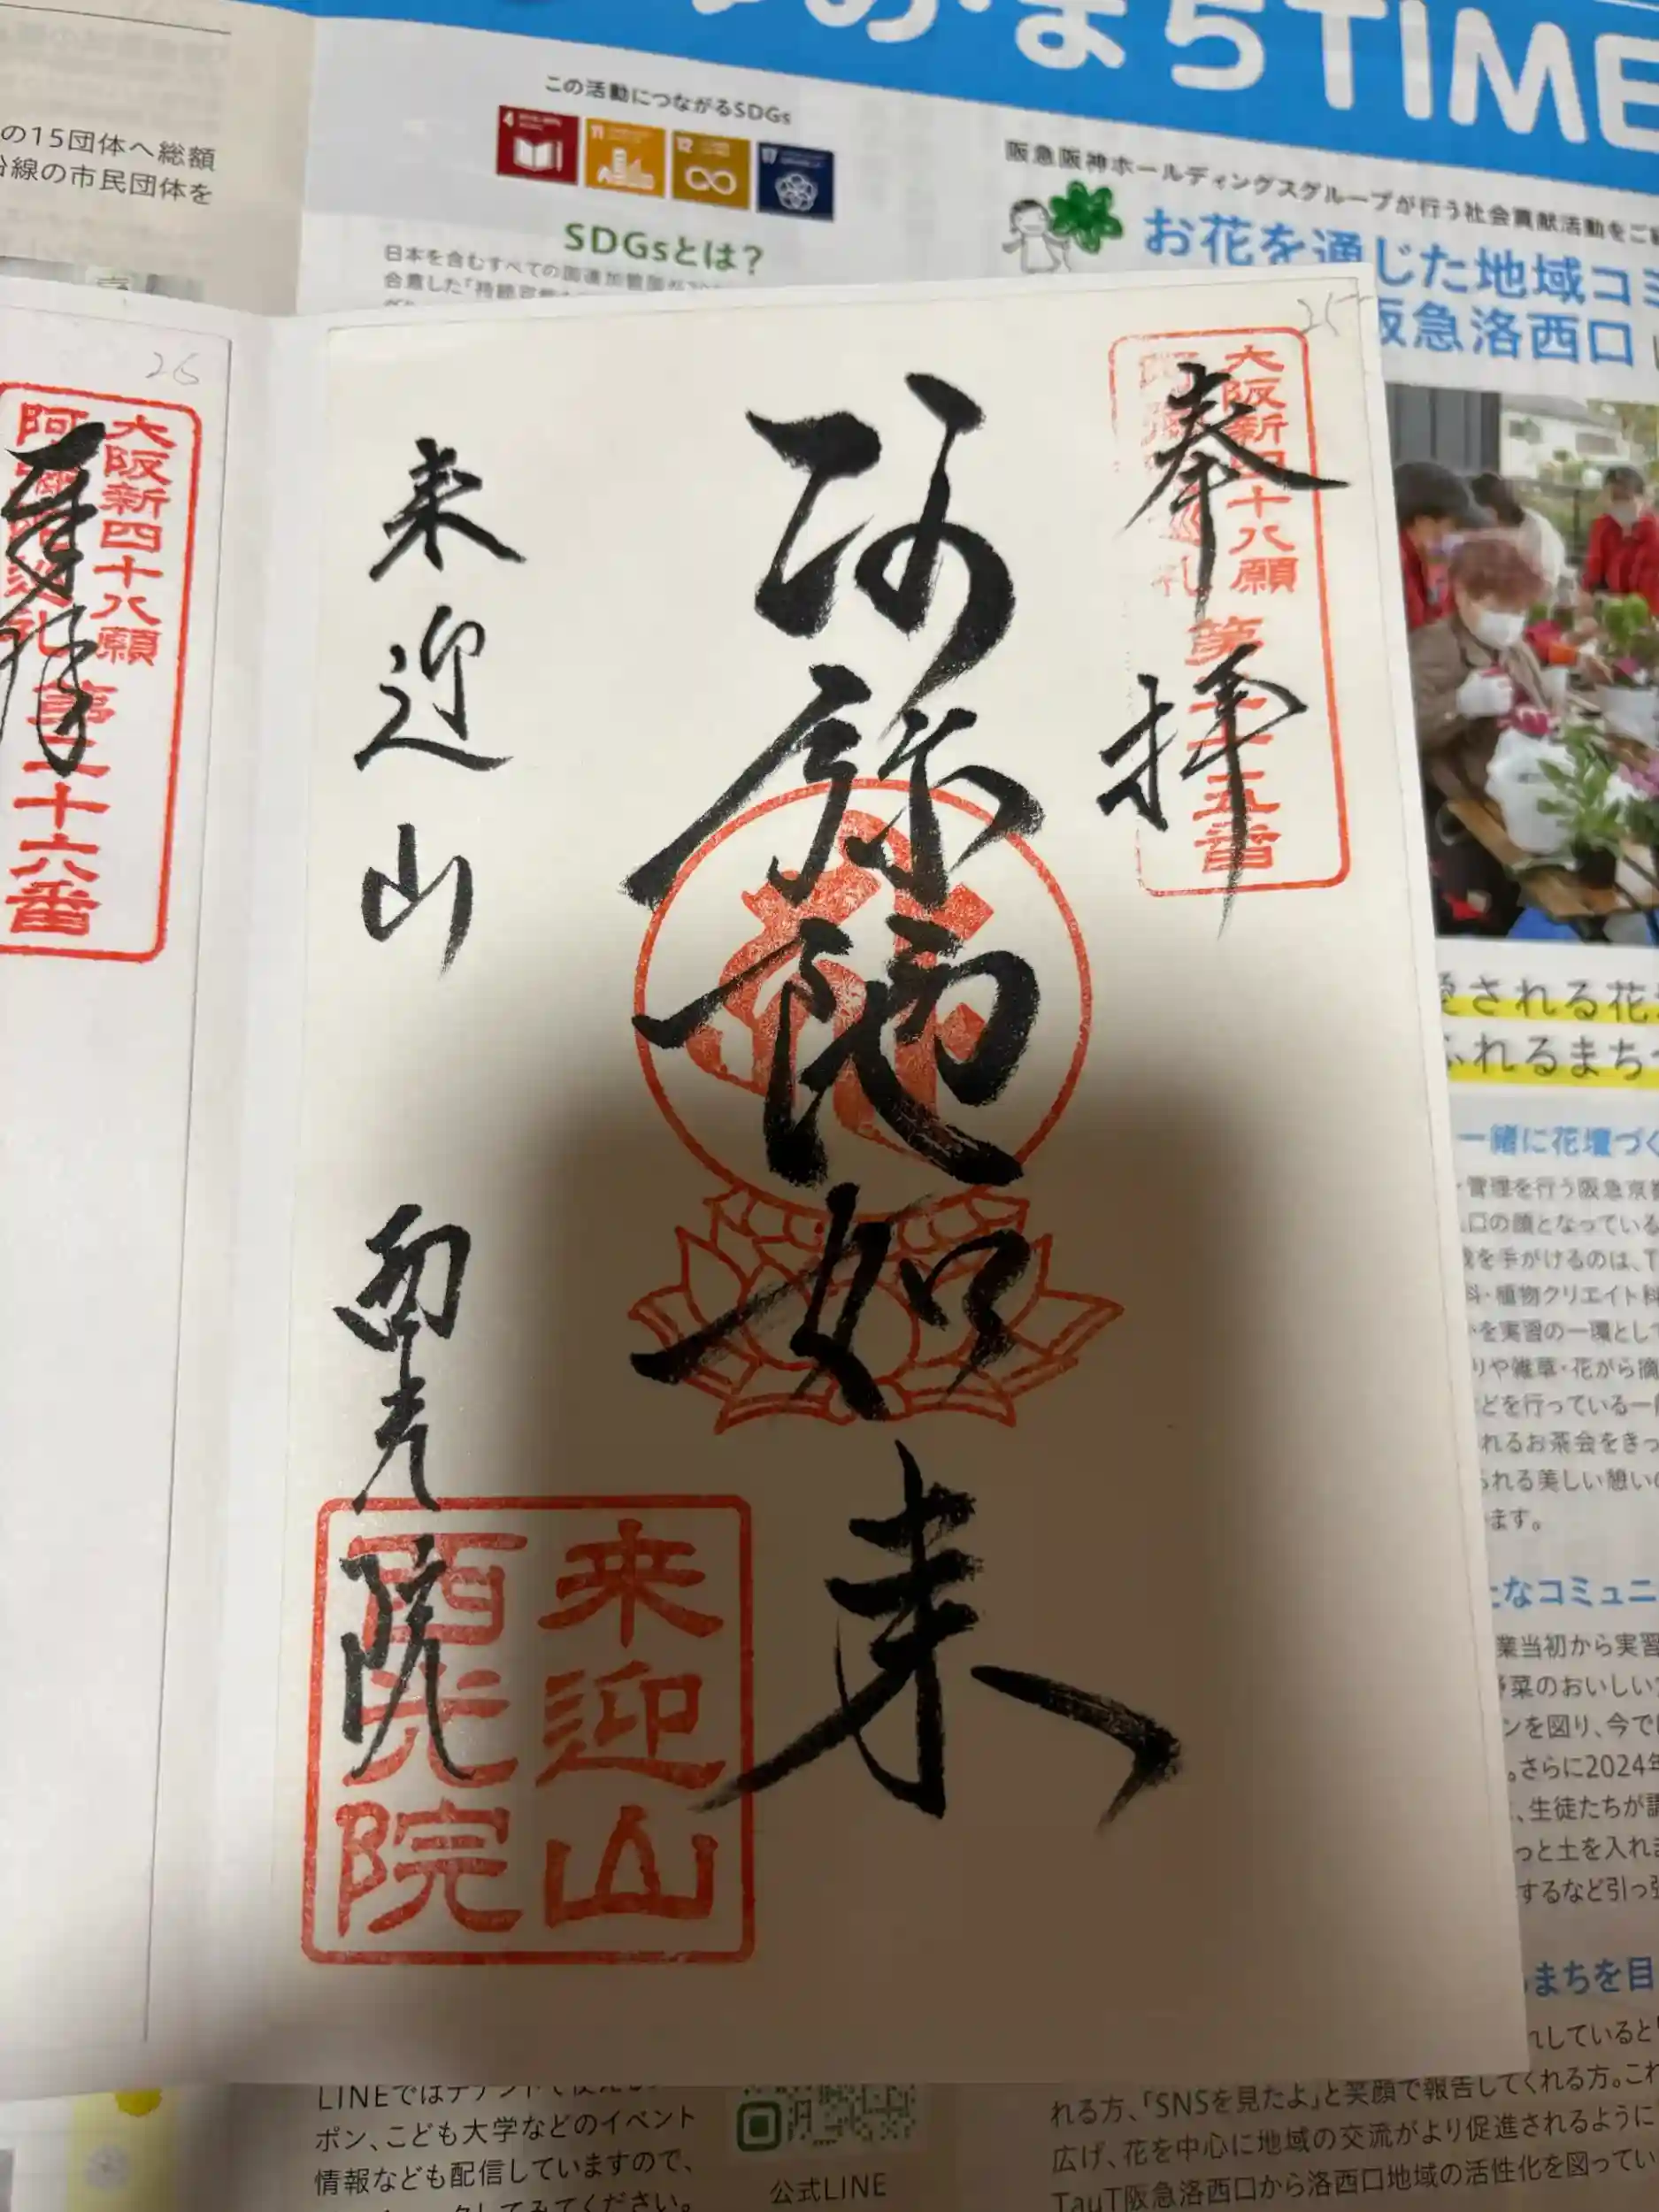 まちTIME
の15団体へ総額
沿線の市民団体を
この活動につながるSDGs
4
11
12
17
SDGsとは?
日本を含むすべての国連加盟国が
阪急阪神ホールディングスグループが行う社会貢献活動をご
お花を通じた地域コミ
阪急洛西口
25
大阪新四十八願
阿弥陀巡礼
第二十五番
奉拝
阿弥陀如来
来迎山
西光院
来迎山
西光院
26
大阪新四十八願
阿弥陀巡礼
第二十六番
奉拝
愛される花
ふれるまち
一緒に花壇づく
管理を行う阪急京都
口の顔となっている
を手がけるのは、T
科・植物クリエイト科
を実習の一環として
りや雑草・花がら摘
などを行っている
れるお茶会をきっ
られる美しい憩いの
います。
たなコミュニ
業当初から実習
野菜のおいしい
ンを図り、今で
。さらに2024年
、生徒たちが講
っと土を入れ
するなど引っ張
まちを目
れしていると
LINEではテナントで使える
ポン、こども大学などのイベント
情報なども配信していますので、
してみてください。
公式LINE
れる方、「SNSを見たよ」と笑顔で報告してくれる方。これ
広げ、花を中心に地域の交流がより促進されるように
TauT阪急洛西口から洛西口地域の活性化を図ってい